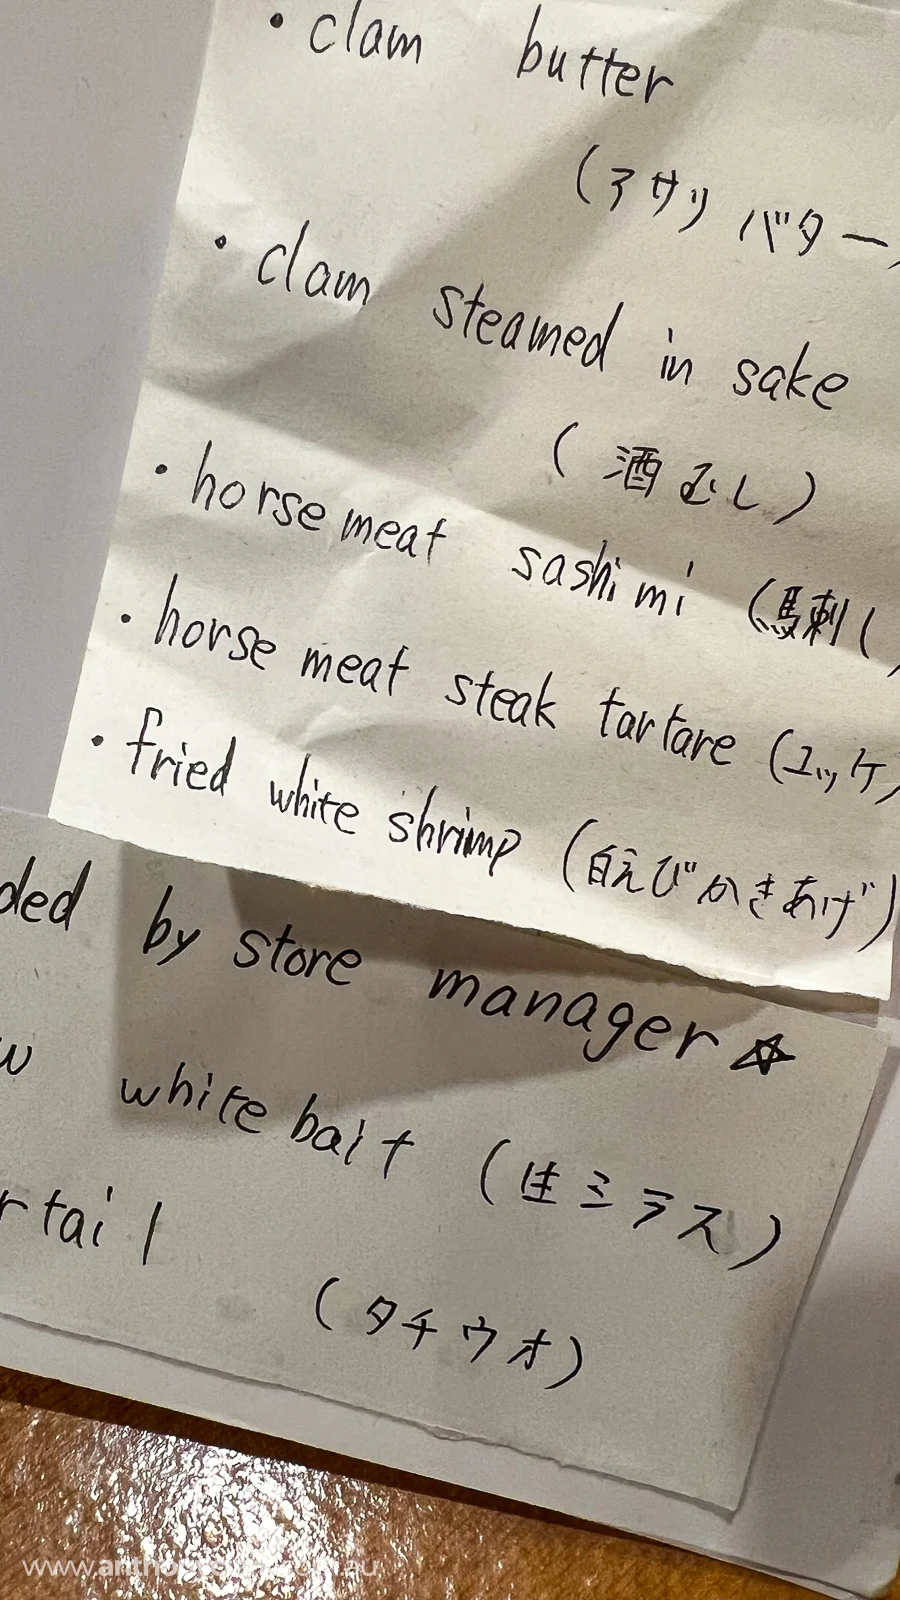 • clam butter
(アサリ バター)
• clam steamed in sake
(酒むし)
• horse meat sashimi (馬刺し)
• horse meat steak tartare (ユッケ)
• fried white shrimp (白えびかきあげ)
ded by store manager ☆
w white bait (生シラス)
r tail
(タチウオ)